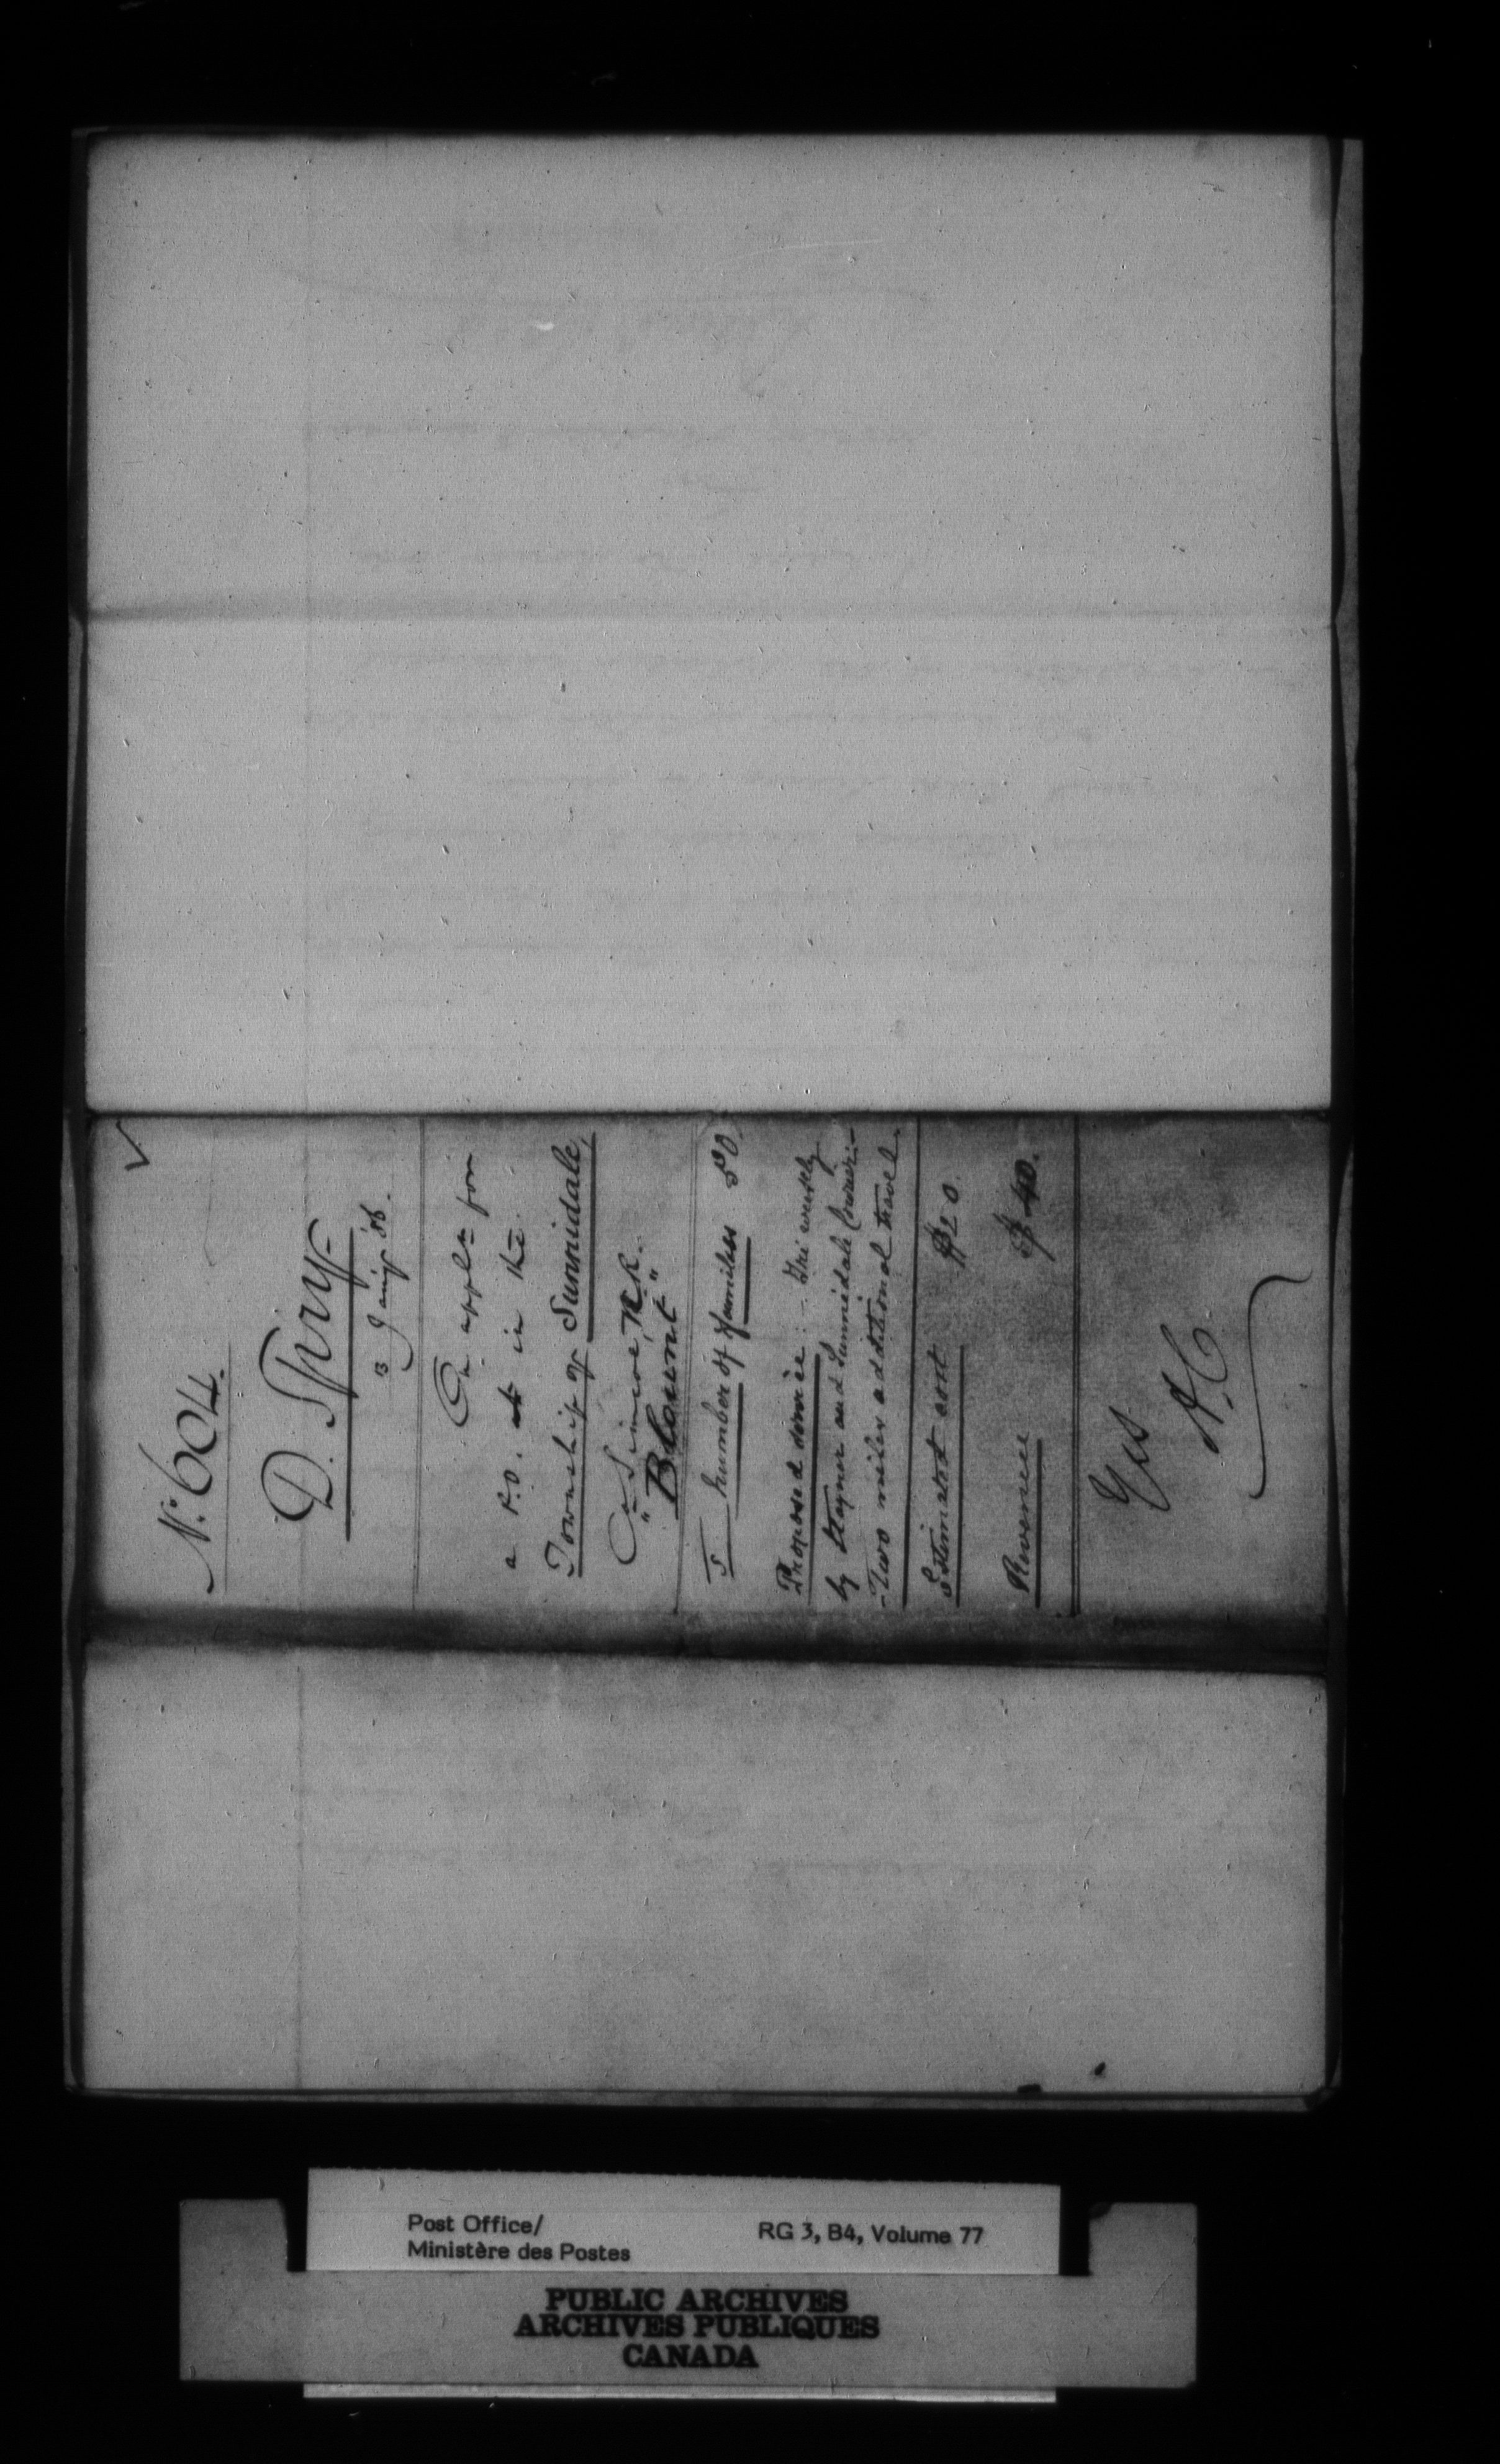 No. 604.
D. Spry
13 Jany '86.
On appln for
a P.O. in the
Township of Sunnidale,
Co Simcoe, N.R.
"Blount"
5 number of families 50
Proposed service :- Tri weekly
by Stayner and Sunnidale Courier-
-Two miles additional travel.
Estimated cost $20.
Revenue $40.
Yes
Post Office/
Ministère des Postes
RG 3, B4, Volume 77
PUBLIC ARCHIVES
ARCHIVES PUBLIQUES
CANADA